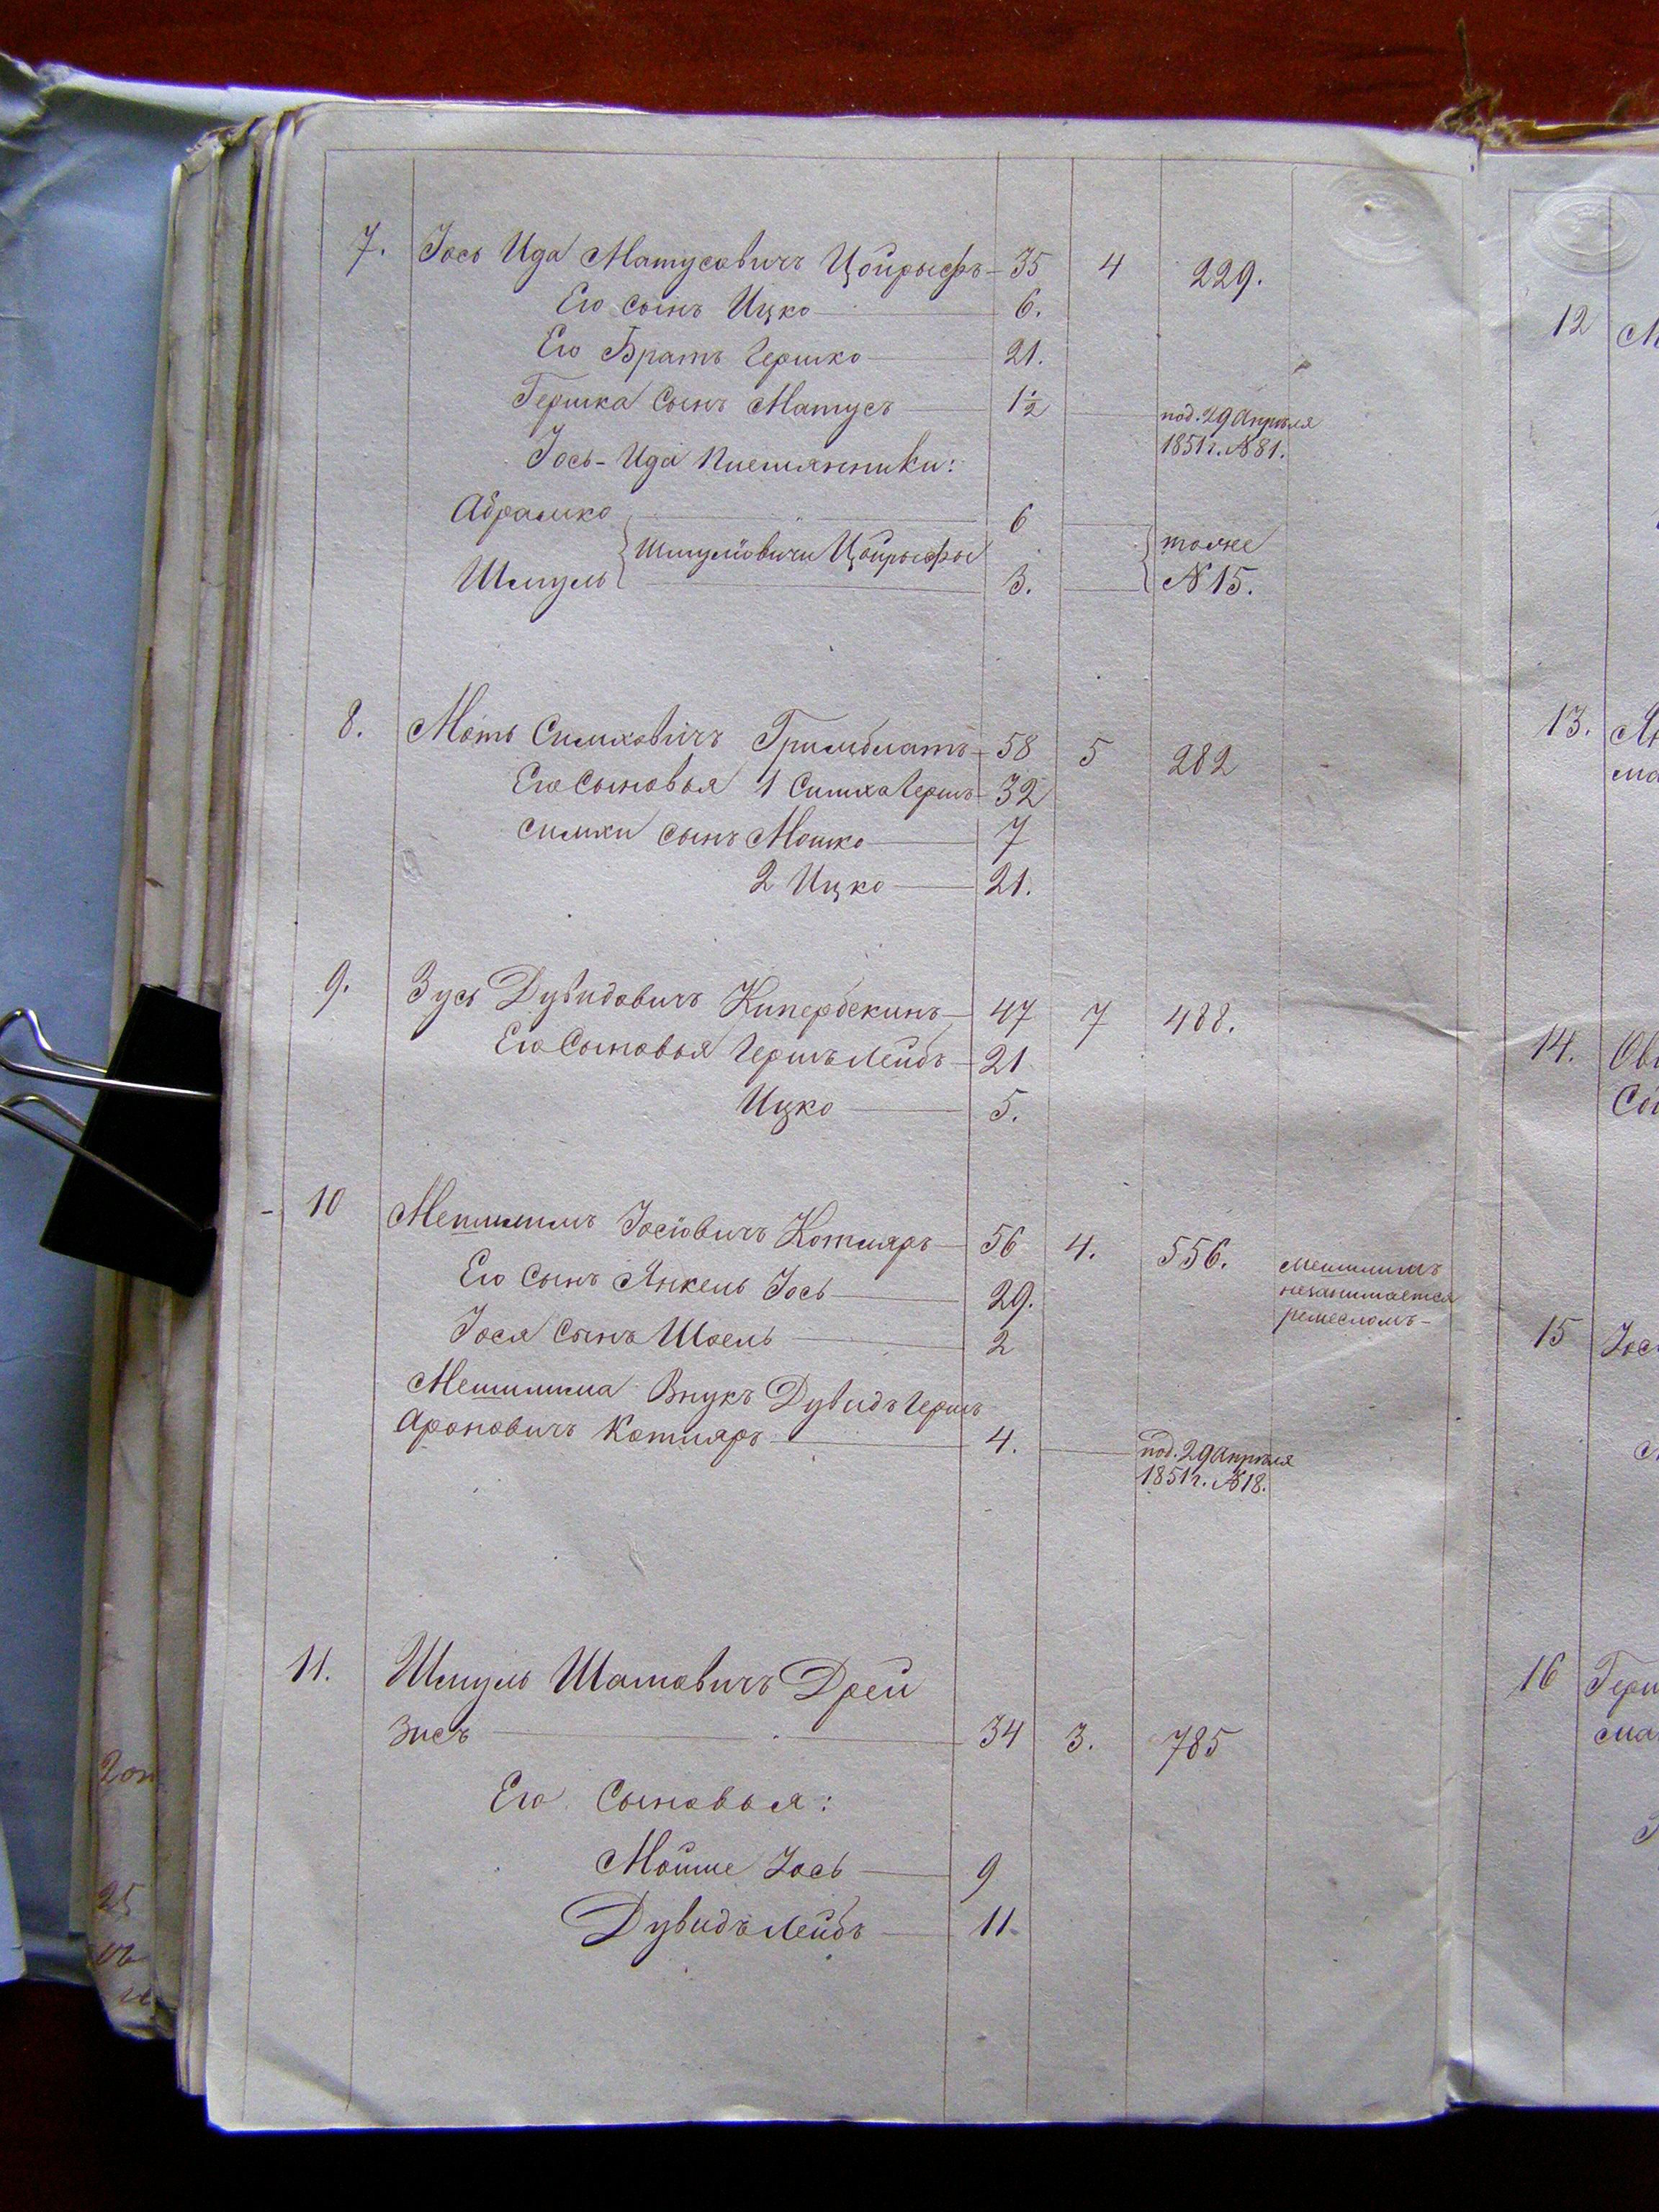 7. Іось Ида Матусовичъ Цойрыфъ 35 4 229.
Его сынъ Ицко 6.
Его Братъ Гершко 21.
Гершка Сынъ Матусъ 1½
под. 29 Апрѣля
1851 г. № 81.
Іось-Ида племянники:
Абрамко 6
Шмулiовичи Цойрыфы
тоже
Шмуль 3. № 15.
8. Моть Симховичъ Гримблатъ 58 5 282
Его Сыновья 1 Симха Гершъ 32
Симхи сынъ Мошко 7
2 Ицко 21.
9. Зусь Дувидовичъ Кипербекинъ 47 7 488.
Его Сыновья Гершъ Лейбъ 21
Ицко 5.
10 Мешилимъ Іосіовичъ Котляръ 56 4. 556.
Мешилимъ
незанимается
ремесломъ
Его Сынъ Янкель Іось 29.
Іося Сынъ Шоель 2
Мешилима Внукъ Дувидъ Гершъ
Ароновичъ Котляръ 4.
под. 29 апрѣля
1851 г. № 18.
11. Шмуль Шамовичъ Дрей
зисъ 34 3. 785
Его Сыновья:
Мойше Іось 9
Дувидъ Лейбъ 11
12
13.
14.
15
16